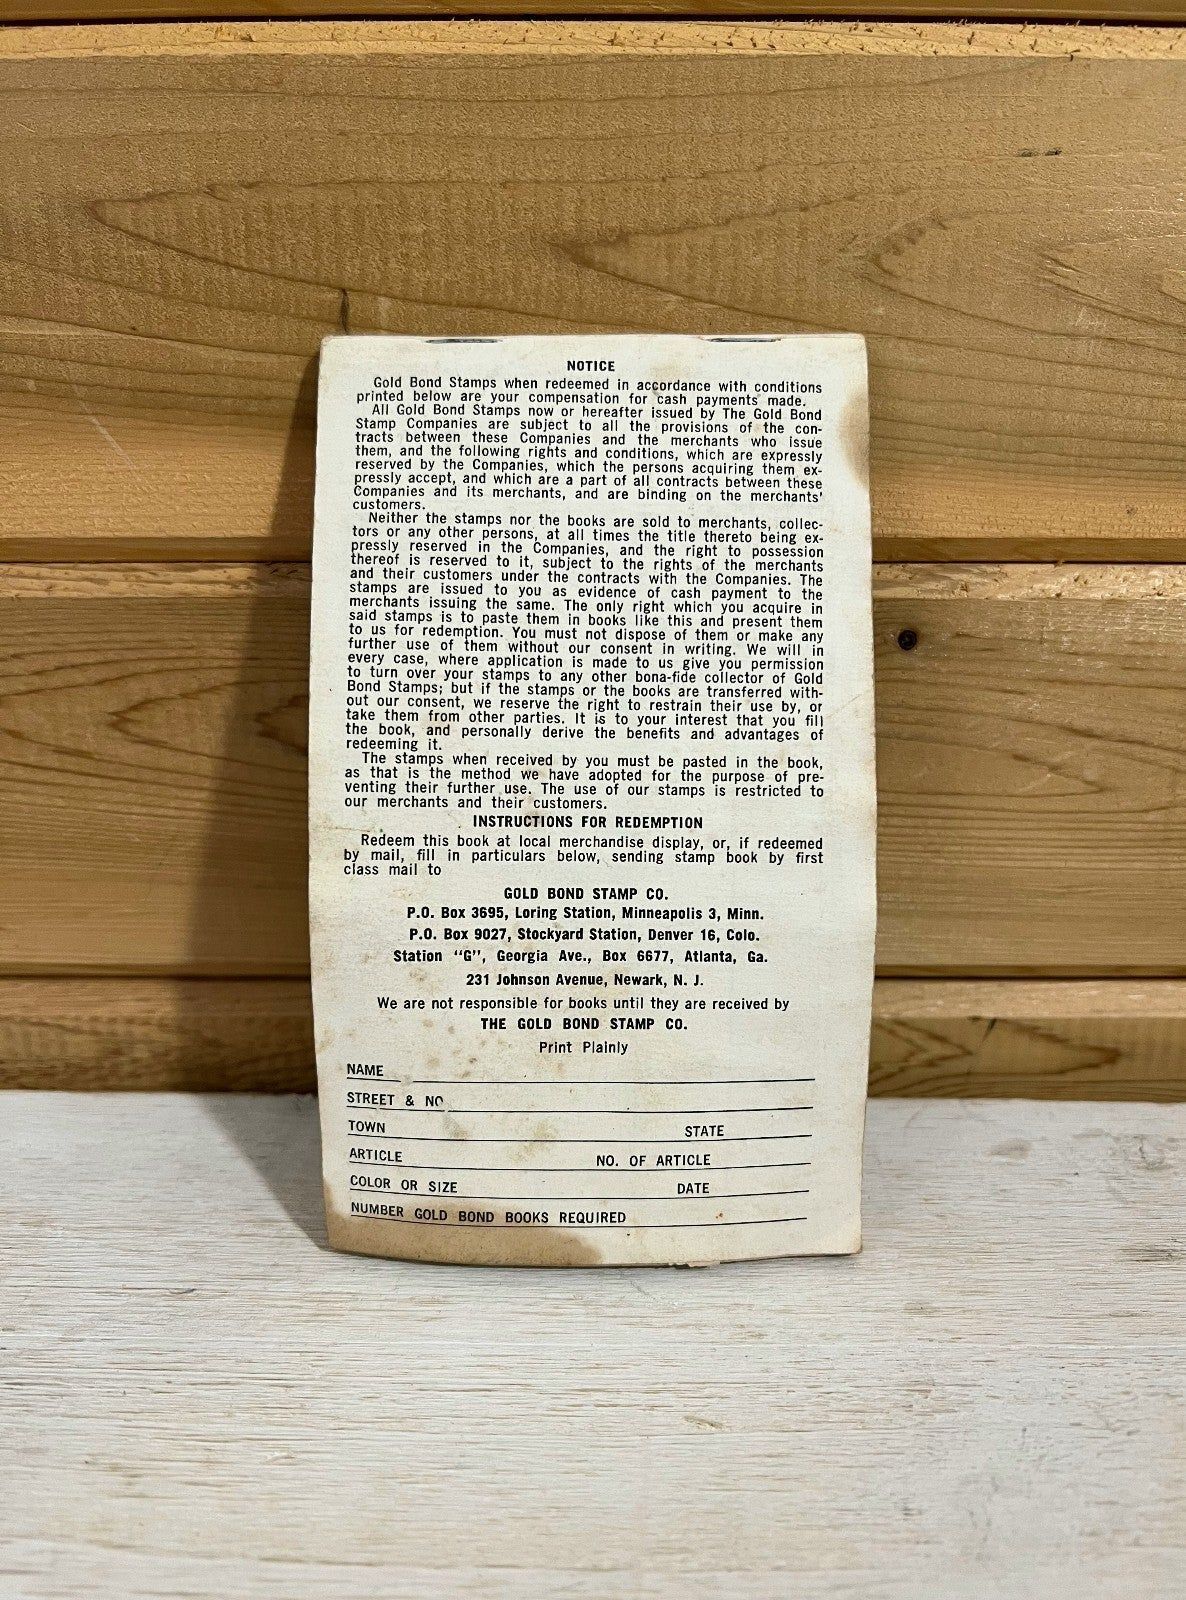 NOTICE
Gold Bond Stamps when redeemed in accordance with conditions
printed below are your compensation for cash payments made.
All Gold Bond Stamps now or hereafter issued by The Gold Bond
Stamp Companies are subject to all the provisions of the con-
tracts between these Companies and the merchants who issue
them, and the following rights and conditions, which are expressly
reserved by the Companies, which the persons acquiring them ex-
pressly accept, and which are a part of all contracts between these
Companies and its merchants, and are binding on the merchants'
customers.
Neither the stamps nor the books are sold to merchants, collec-
tors or any other persons, at all times the title thereto being ex-
pressly reserved in the Companies, and the right to possession
thereof is reserved to it, subject to the rights of the merchants
and their customers under the contracts with the Companies. The
stamps are issued to you as evidence of cash payment to the
merchants issuing the same. The only right which you acquire in
said stamps is to paste them in books like this and present them
to us for redemption. You must not dispose of them or make any
further use of them without our consent in writing. We will in
every case, where application is made to us give you permission
to turn over your stamps to any other bona-fide collector of Gold
Bond Stamps; but if the stamps or the books are transferred with-
out our consent, we reserve the right to restrain their use by, or
take them from other parties. It is to your interest that you fill
the book, and personally derive the benefits and advantages of
redeeming it.
The stamps when received by you must be pasted in the book,
as that is the method we have adopted for the purpose of pre-
venting their further use. The use of our stamps is restricted to
our merchants and their customers.
INSTRUCTIONS FOR REDEMPTION
Redeem this book at local merchandise display, or, if redeemed
by mail, fill in particulars below, sending stamp book by first
class mail to
GOLD BOND STAMP CO.
P.O. Box 3695, Loring Station, Minneapolis 3, Minn.
P.O. Box 9027, Stockyard Station, Denver 16, Colo.
Station "G", Georgia Ave., Box 6677, Atlanta, Ga.
231 Johnson Avenue, Newark, N. J.
We are not responsible for books until they are received by
THE GOLD BOND STAMP CO.
Print Plainly
NAME
STREET & NO
TOWN STATE
ARTICLE NO. OF ARTICLE
COLOR OR SIZE DATE
NUMBER GOLD BOND BOOKS REQUIRED